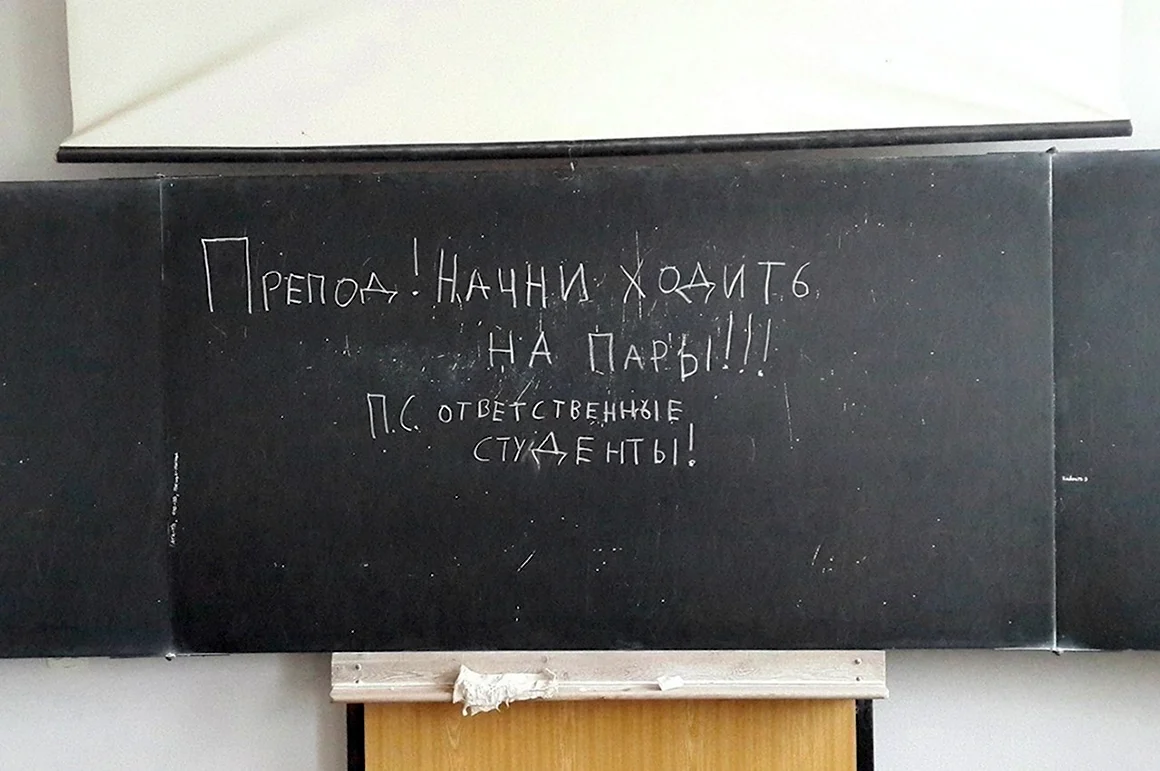 Препод! Начни ходить
на пары!!!
П.С. ответственные
студенты!